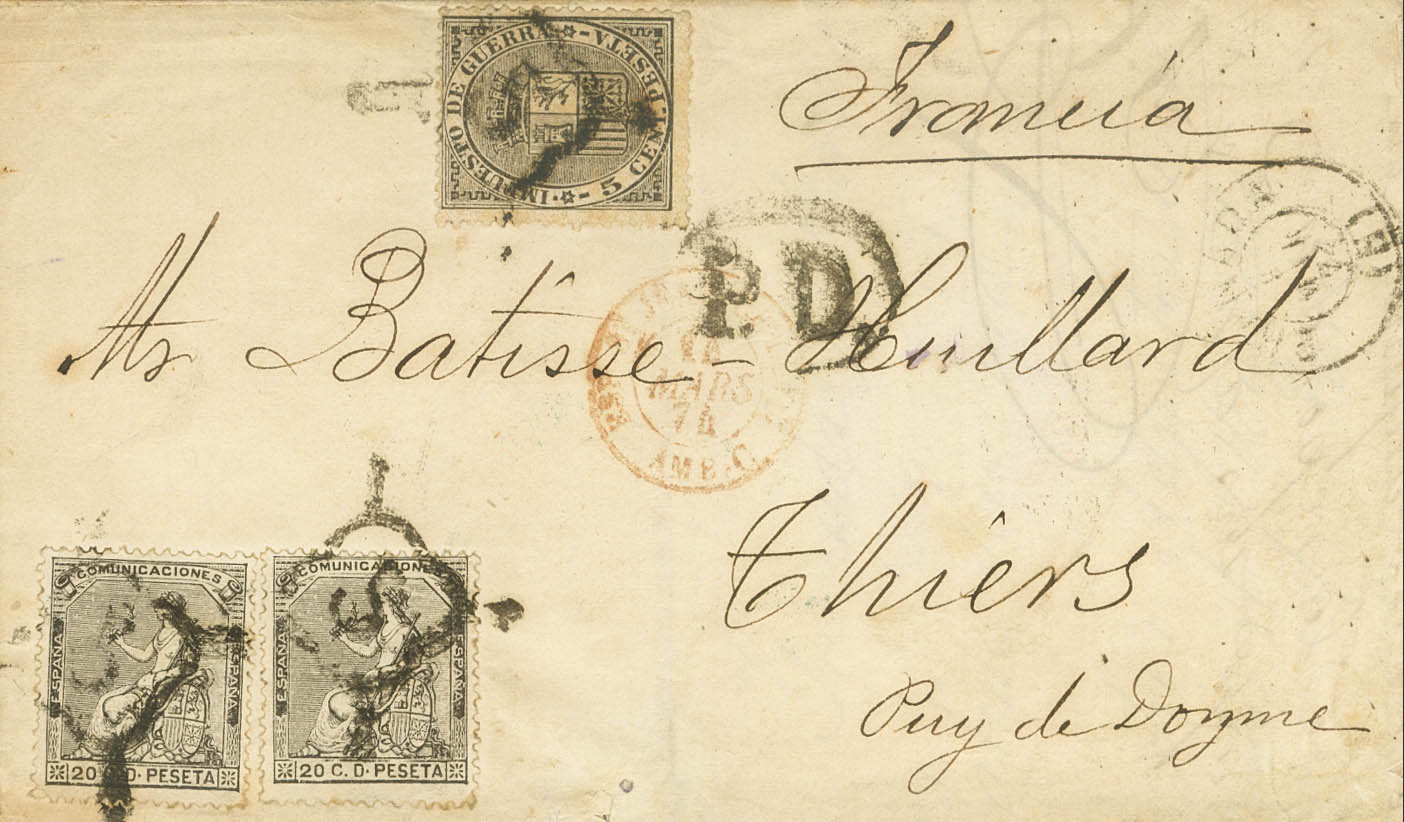 IMPUESTO DE GUERRA
5 CENT. PESETA
Francia
P.D.
Mr Batisse-Huillard
MARS
74
AMB.C.
Thiers
Puy de Doyme
COMUNICACIONES
ESPAÑA
ESPAÑA
20 C. D. PESETA
COMUNICACIONES
ESPAÑA
ESPAÑA
20 C. D. PESETA